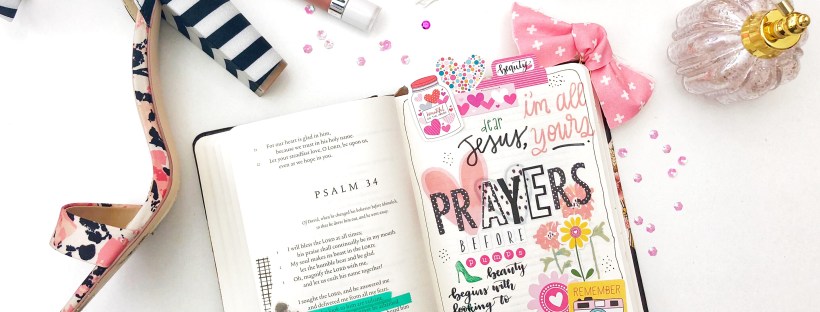 21 For our heart is glad in him,
because we trust in his holy name.
22 Let your steadfast love, O LORD, be upon us,
even as we hope in you.
PSALM 34
Of David, when he changed his behavior before Abimelech,
so that he drove him out, and he went away.
1 I will bless the LORD at all times;
his praise shall continually be in my mouth.
2 My soul makes its boast in the LORD;
let the humble hear and be glad.
3 Oh, magnify the LORD with me,
and let us exalt his name together!
I sought the LORD, and he answered me
and delivered me from all my fears.
beauty
beautiful
dear
Jesus,
i'm all
yours.
PRAYERS
BEFORE
PUMPS
beauty
begins with
looking to
REMEMBER